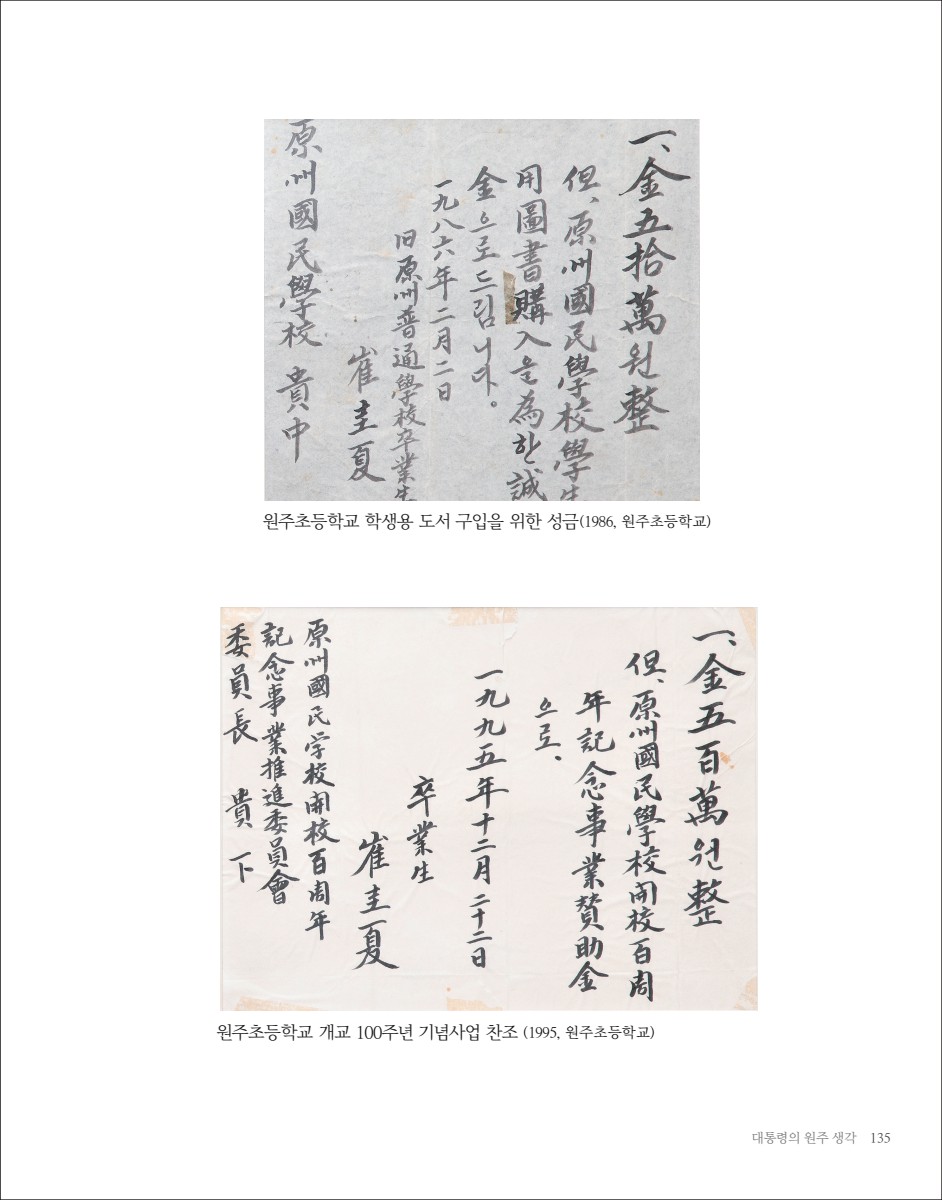 一、金五拾萬원整
但、原州國民學校學生
用圖書購入을為한誠
金으로드립니다。
一九八六年二月二日
旧原州普通學校卒業生
崔圭夏
原州國民學校 貴中
원주초등학교 학생용 도서 구입을 위한 성금(1986, 원주초등학교)
一、金五百萬원整
但、原州國民學校開校百周
年記念事業賛助金
으로、
一九九五年十二月二十二日
卒業生
崔圭夏
原州國民学校開校百周年
記念事業推進委員會
委員長 貴下
원주초등학교 개교 100주년 기념사업 찬조 (1995, 원주초등학교)
대통령의 원주 생각 135